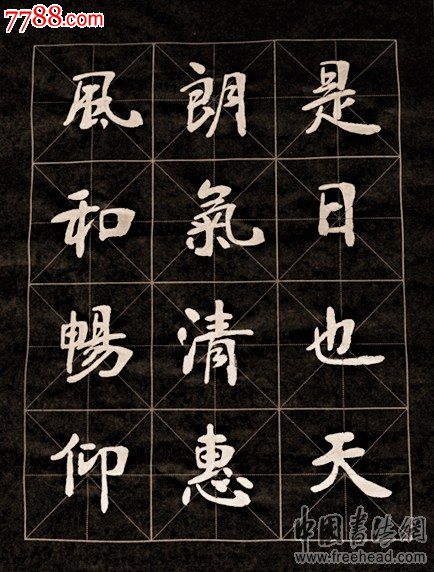 7788.com
是日也天
朗氣清惠
風和暢仰
中國書法網
www.freehead.com